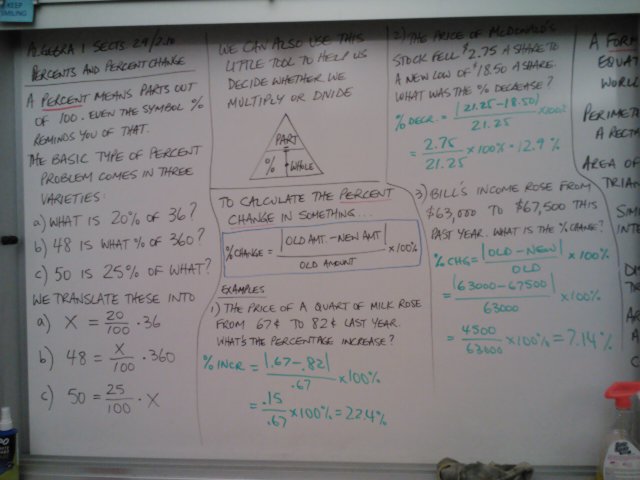 KEEP
SMILING
ALGEBRA 1 SECTS 2.9/2.10
PERCENTS AND PERCENT CHANGE
A PERCENT MEANS PARTS OUT
OF 100. EVEN THE SYMBOL %
REMINDS YOU OF THAT.
THE BASIC TYPE OF PERCENT
PROBLEM COMES IN THREE
VARIETIES:
a) WHAT IS 20% OF 36?
b) 48 IS WHAT % OF 360?
c) 50 IS 25% OF WHAT?
WE TRANSLATE THESE INTO
a) X = 20/100 · 36
b) 48 = X/100 · 360
c) 50 = 25/100 · X
WE CAN ALSO USE THIS
LITTLE TOOL TO HELP US
DECIDE WHETHER WE
MULTIPLY OR DIVIDE
PART
% · WHOLE
TO CALCULATE THE PERCENT
CHANGE IN SOMETHING...
% CHANGE = |OLD AMT. - NEW AMT| / OLD AMOUNT × 100%
EXAMPLES
1) THE PRICE OF A QUART OF MILK ROSE
FROM 67¢ TO 82¢ LAST YEAR.
WHAT'S THE PERCENTAGE INCREASE?
% INCR = |.67 - .82| / .67 × 100%
= .15/.67 × 100% = 22.4%
2) THE PRICE OF MCDONALD'S
STOCK FELL $2.75 A SHARE TO
A NEW LOW OF $18.50 A SHARE.
WHAT WAS THE % DECREASE?
% DECR. = |21.25 - 18.50| / 21.25 × 100%
= 2.75/21.25 × 100% = 12.9%
3) BILL'S INCOME ROSE FROM
$63,000 TO $67,500 THIS
PAST YEAR. WHAT IS THE % CHANGE?
% CHG = |OLD - NEW| / OLD × 100%
= |63000 - 67500| / 63000 × 100%
= 4500/63000 × 100% = 7.14%
A FORM
EQUAT
WORL
PERIMET
A RECT
AREA OF
TRIA
SIM
INT